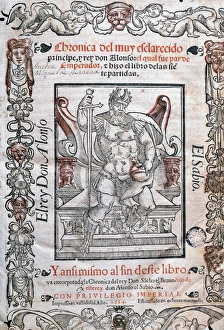 Chronica del muy esclarecido
principe, y rey don Alfonso: el qual fue par de
Emperador, z hizo el libro de las sie
te partidas.
El rey D. Alonso
El Sabio.
Y ansi mismo al fin deste libro
va encorporada la Chronica del rey Don Sancho el Brauo
rey don Alfonso el Sabio.
CON PRIVILEGIO IMPERIAL
1554